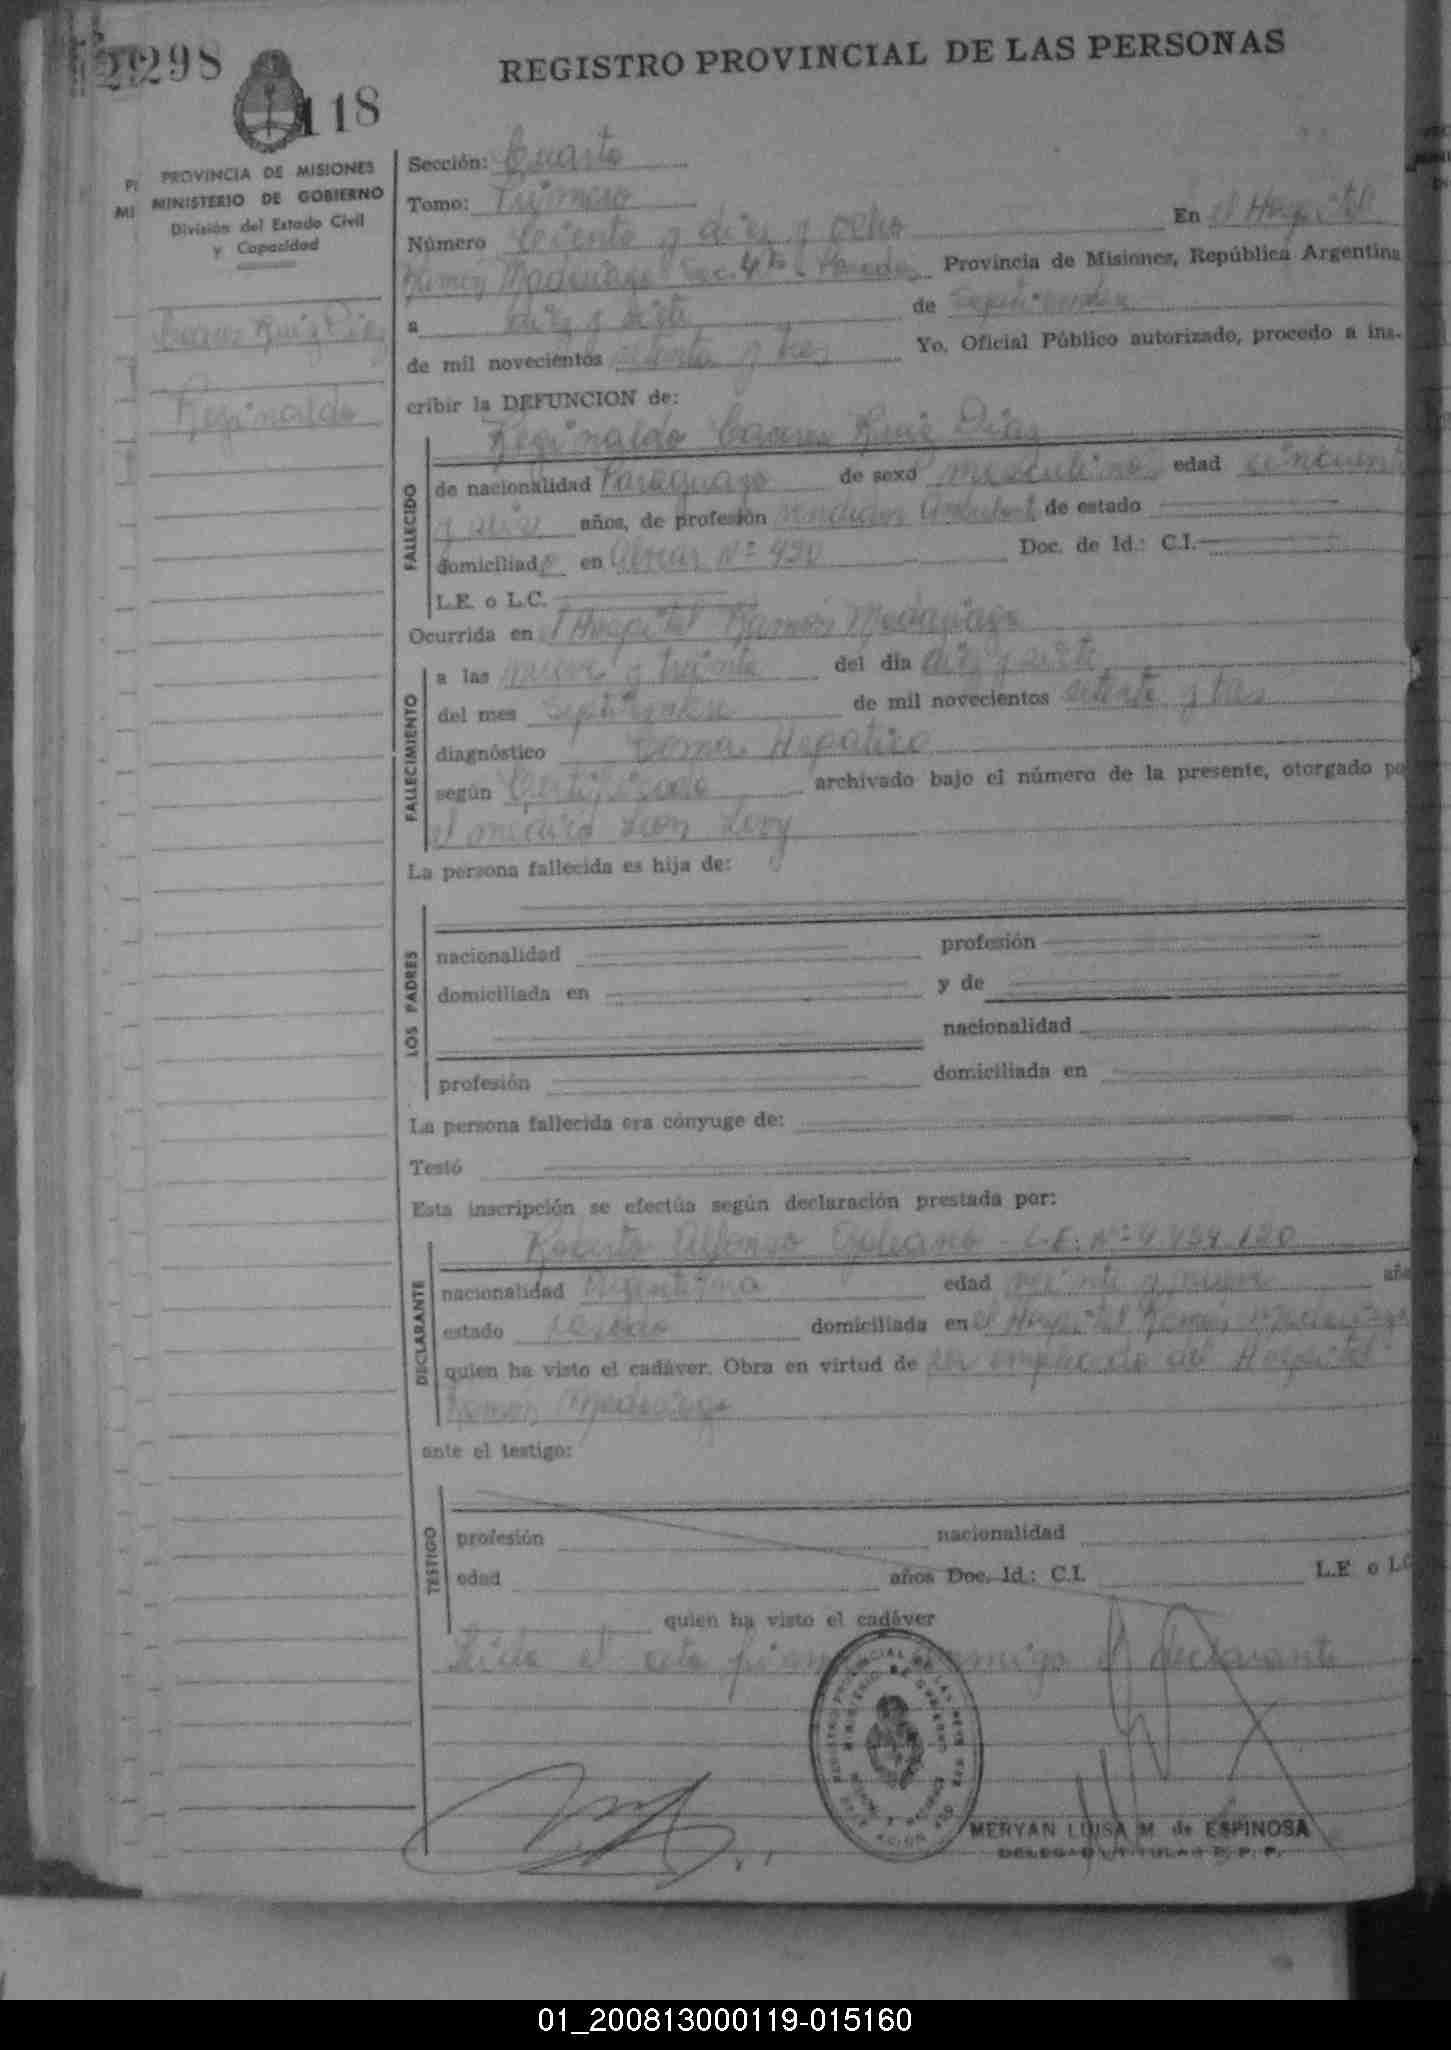 298
118
REGISTRO PROVINCIAL DE LAS PERSONAS
PROVINCIA DE MISIONES
MINISTERIO DE GOBIERNO
División del Estado Civil
y Capacidad
Ruiz Diaz
Reginaldo
Sección: Cuarta
Tomo: Primero
Número Ciento y diez y ocho En el Hospital
Ramón Madariaga Sec. 4ta Posadas Provincia de Misiones, República Argentina
a diez y siete de Septiembre
de mil novecientos setenta y tres Yo, Oficial Público autorizado, procedo a ins-
cribir la DEFUNCION de:
Reginaldo Ruiz Diaz
FALLECIDO
de nacionalidad Paraguayo de sexo masculino edad cincuenta
y seis años, de profesión vendedor Ambulante de estado
domiciliado en N° 490 Doc. de Id.: C.I.
L.E. o L.C.
Ocurrida en el Hospital Ramón Madariaga
FALLECIMIENTO
a las nueve y treinta del día diez y siete
del mes Septiembre de mil novecientos setenta y tres
diagnóstico Coma Hepatico
según Certificado archivado bajo el número de la presente, otorgado po
el médico Leon Levy
La persona fallecida es hija de:
LOS PADRES
nacionalidad profesión
domiciliada en y de
nacionalidad
profesión domiciliada en
La persona fallecida era cónyuge de:
Testó
Esta inscripción se efectúa según declaración prestada por:
Roberto Alfonso Galeano - L.E. N° 4.454.120
DECLARANTE
nacionalidad Argentina edad veinte y nueve año
estado casado domiciliada en el Hospital Ramón Madariaga
quien ha visto el cadáver. Obra en virtud de ser empleado del Hospital
Ramón Madariaga
ante el testigo:
TESTIGO
profesión nacionalidad
edad años Doc. Id.: C.I. L.E o LC
quien ha visto el cadáver
Leida el acta firma conmigo el declarante
REGISTRO PROVINCIAL DE LAS PERSONAS
MINISTERIO DE GOBIERNO
MERYAN LUISA M. de ESPINOSA
DELEGADA TITULAR R. P. P.
01_200813000119-015160